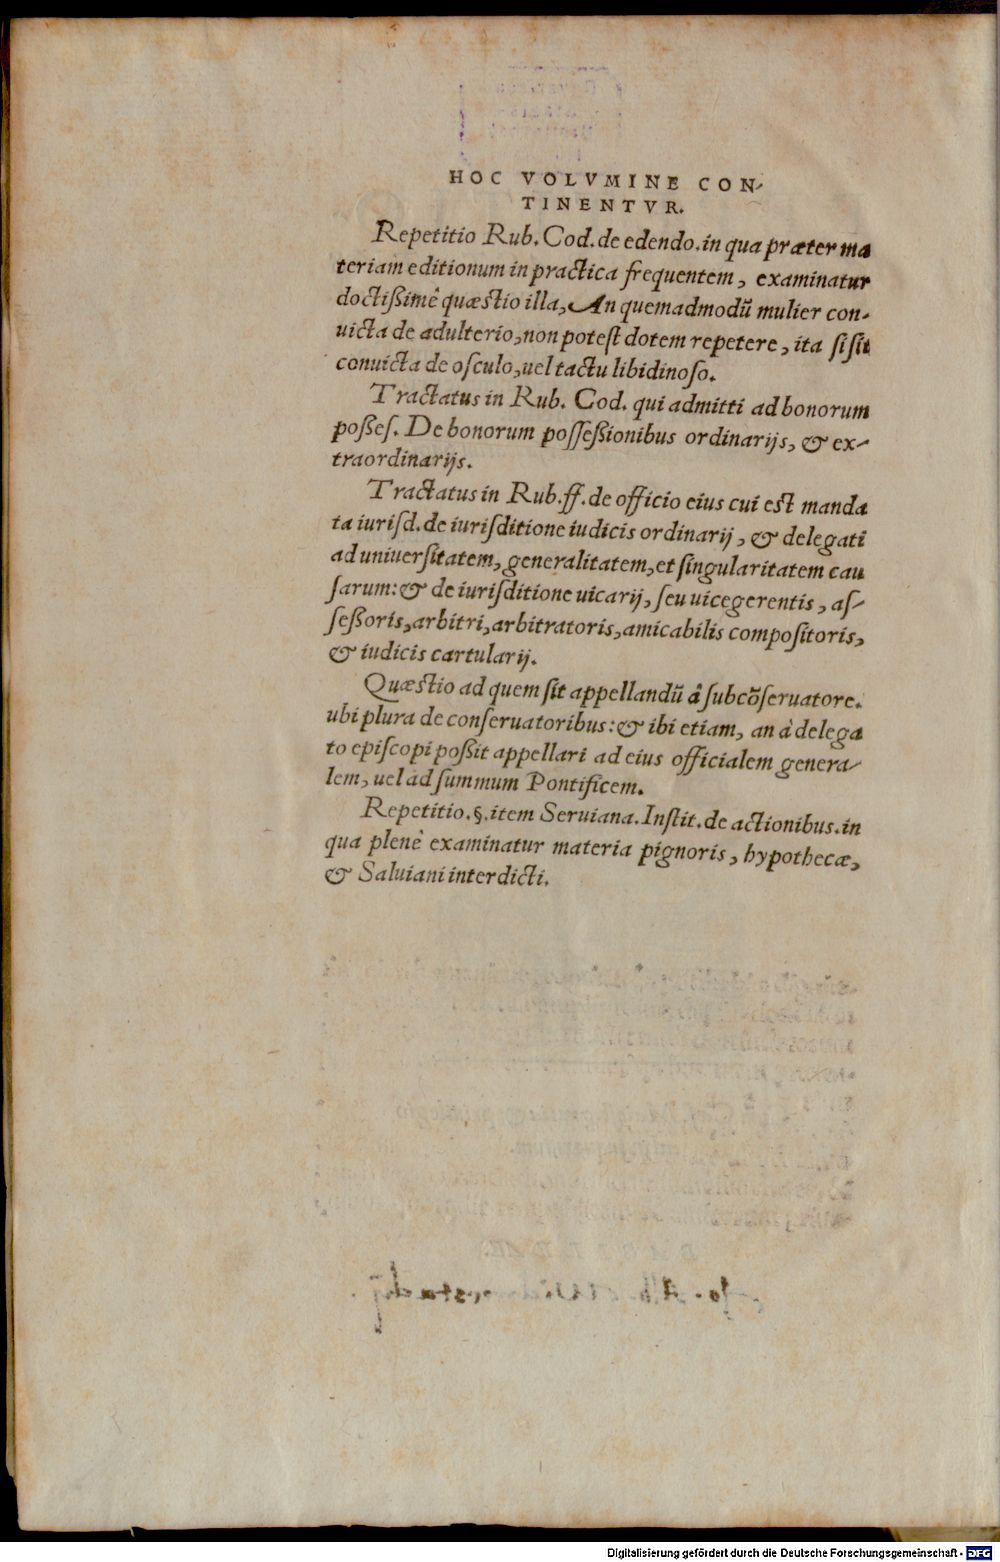 HOC VOLVMINE CON-
TINENTVR.
Repetitio Rub. Cod. de edendo. in qua præter ma
teriam editionum in practica frequentem, examinatur
doctißimê quæstio illa, An quemadmodũ mulier con-
uicta de adulterio, non potest dotem repetere, ita si sit
conuicta de osculo, uel tactu libidinoso.
Tractatus in Rub. Cod. qui admitti ad bonorum
poßes. De bonorum possessionibus ordinarijs, & ex-
traordinarijs.
Tractatus in Rub. ff. de officio eius cui est manda
ta iurisd. de iurisditione iudicis ordinarij, & delegati
ad uniuersitatem, generalitatem, et singularitatem cau
sarum: & de iurisditione uicarij, seu uicegerentis, as-
seßoris, arbitri, arbitratoris, amicabilis compositoris,
& iudicis cartularij.
Quæstio ad quem sit appellandũ â subcõseruatore.
ubi plura de conseruatoribus: & ibi etiam, an à delega
to episcopi poßit appellari ad eius officialem genera-
lem, uel ad summum Pontificem.
Repetitio. §. item Seruiana. Instit. de actionibus. in
qua plenè examinatur materia pignoris, hypothecæ,
& Saluiani interdicti.
Digitalisierung gefördert durch die Deutsche Forschungsgemeinschaft - DFG